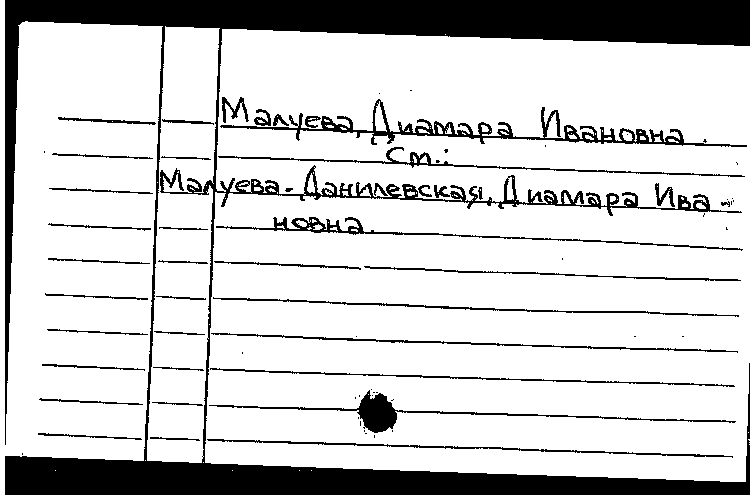 Малуева, Диамара Ивановна.
См.:
Малуева-Данилевская, Диамара Ива-
новна.